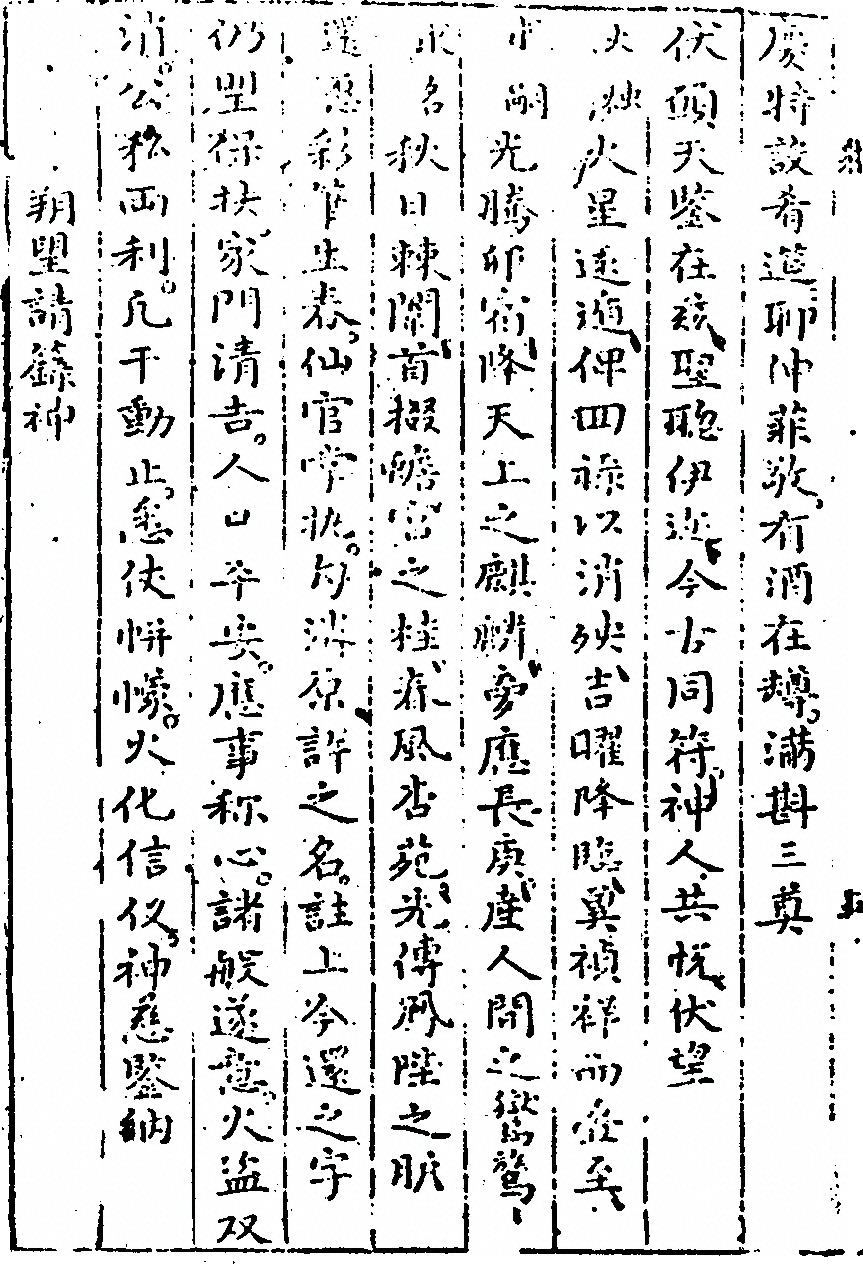 慶特設肴筵聊伸菲敬有酒在樽滿斟三奠
伏願天鑒在兹聖聰伊迩今古同符神人共悅伏望
火烛火星速遁俾四禄以消殃吉曜降臨冀禎祥而叠至
求嗣光騰卯宿降天上之麒麟夢應長庚產人間之鸑鷟
求名秋日棘闈首掇蟾宮之桂春風杏苑光傳鳳陛之胪
還愿彩筆生春仙官掌抝勾消原許之名註上今還之字
仍望保扶家門清吉人口平安應事称心諸般遂意火盜双
消公私両利凡干動止悉伏帡幪火化信仪神慈鑒納
朔望請籙神